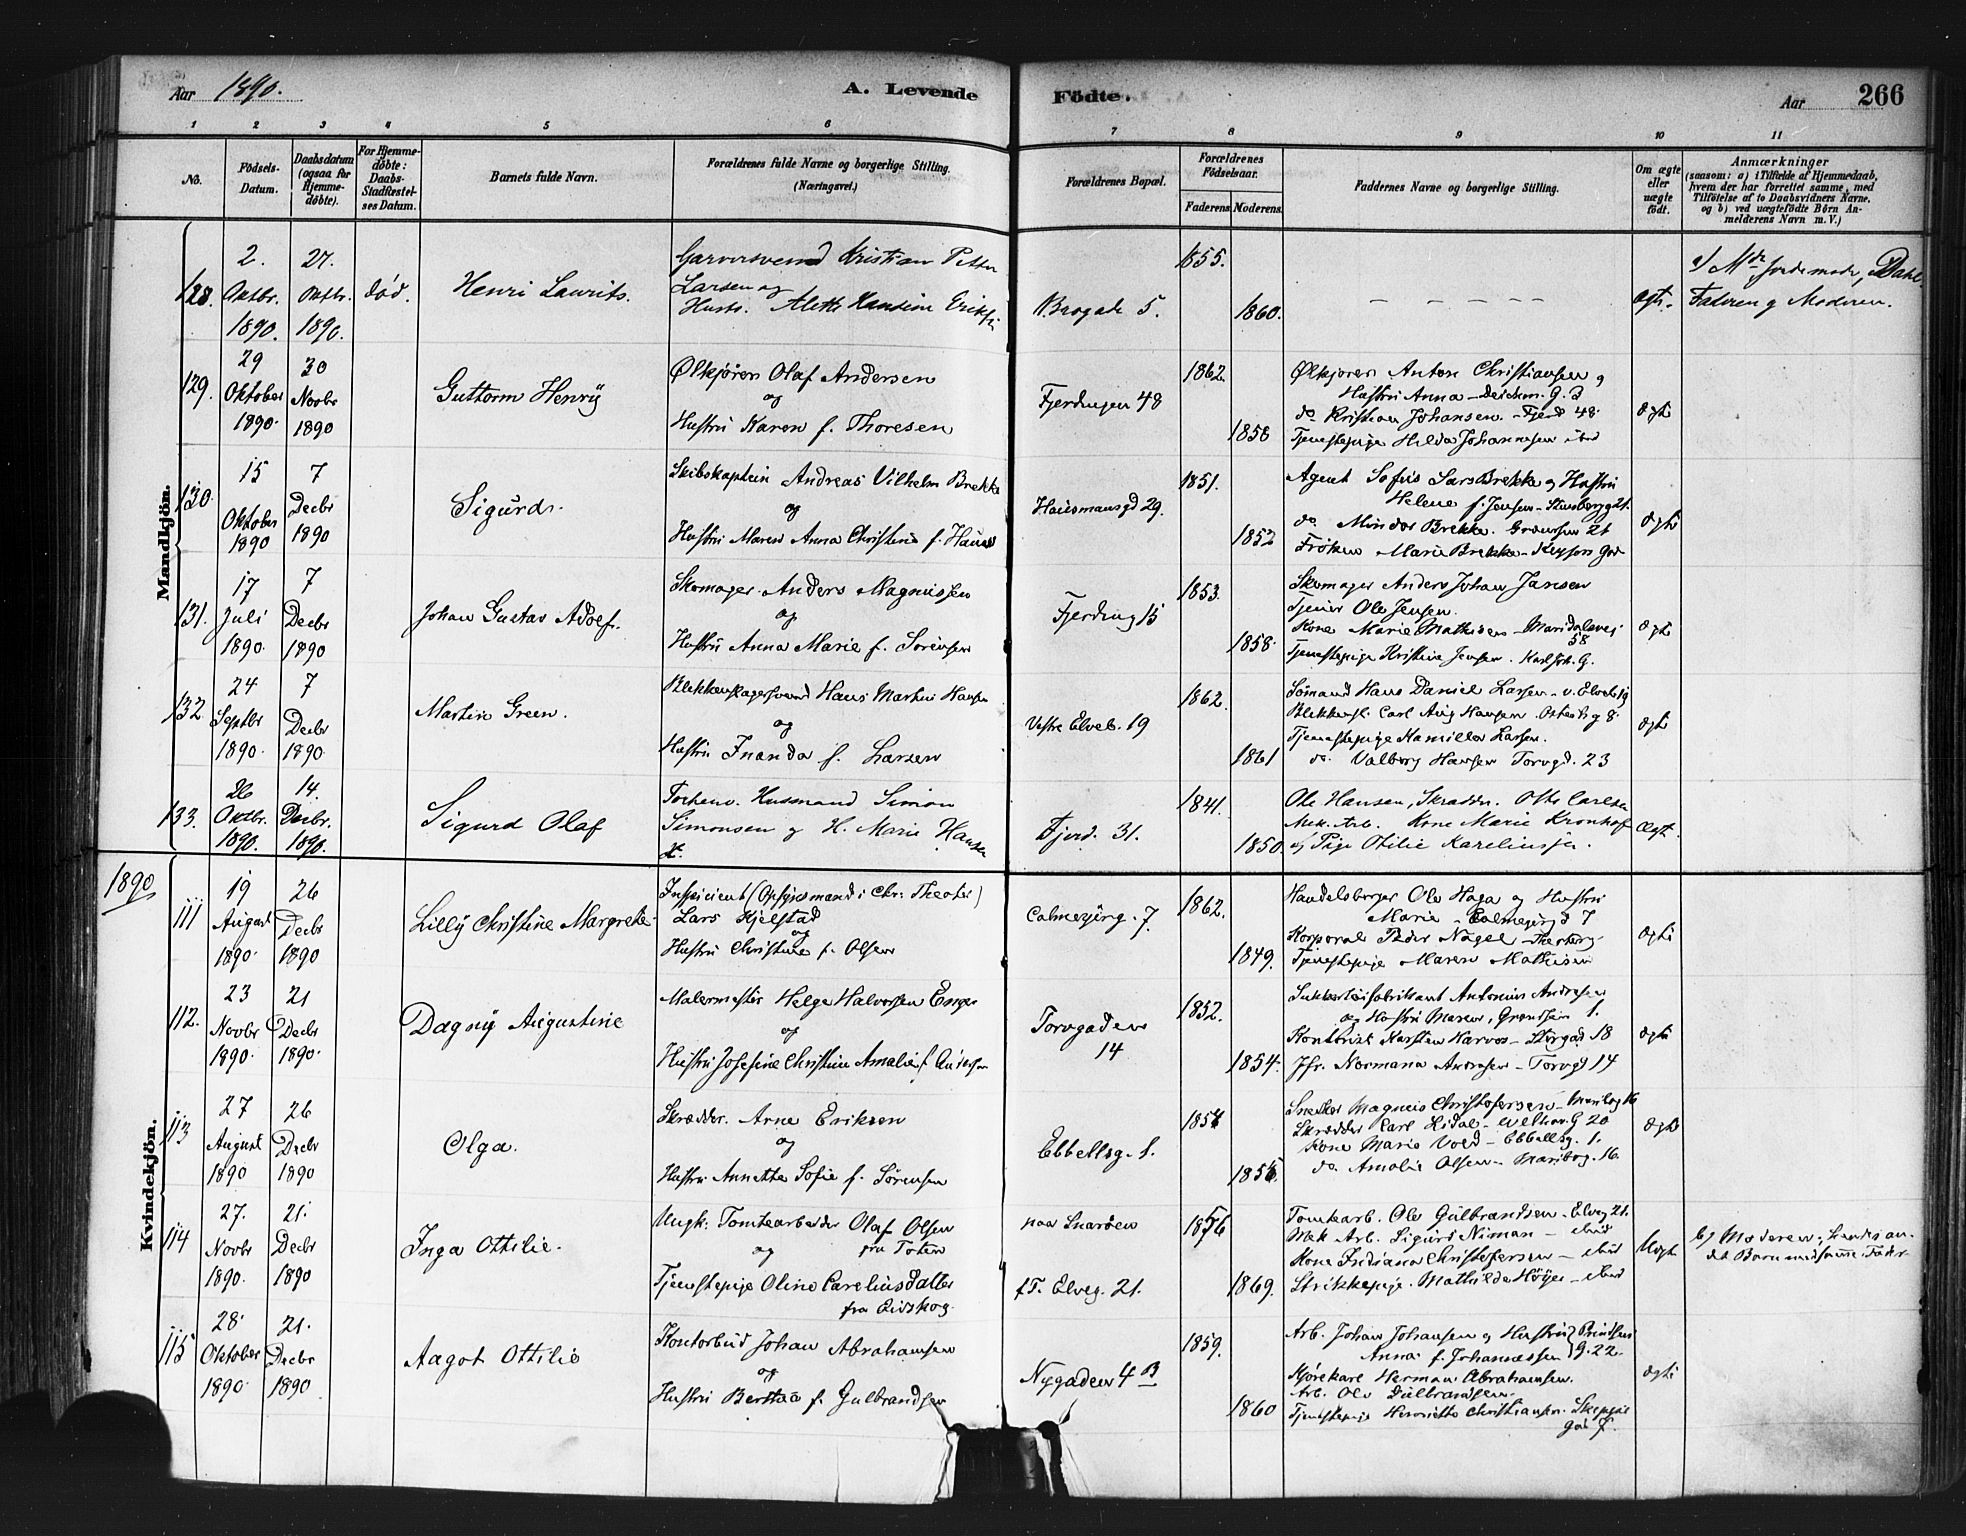 Aar 1890.
A. Levende
Födte.
Aar
266
1 2 3 4 5 6 7 8 9 10 11
No.
Födsels-Datum.
Daabsdatum (ogsaa for Hjemme-døbte).
For Hjemme-døbte: Daabs-Stadfæstel-ses Datum.
Barnets fulde Navn.
Forældrenes fulde Navne og borgerlige Stilling.
(Næringsvei.)
Forældrenes Bopæl.
Forældrenes Födselsaar.
Faderens. Moderens.
Faddernes Navne og borgerlige Stilling.
Om ægte eller uægte födt.
Anmærkninger
(saasom: a) i Tilfælde af Hjemmedaab,
hvem der har forrettet samme, med
Tilföielse af to Daabsvidners Navne.
og b) ved uægtefödte Börn An-
melderens Navn m. V.)
Mandkjön.
128. 2. Oktbr. 1890. 27. Oktbr. 1890. død. Henri Laurits.
Garversvend Kristian Petter
Larsen og
Hustr. Alette Hansine
Brogade 5. 1855. 1860.
Ægte.
Jordemoder, Dahl.
Faderen og Moderen.
129. 29 Oktober 1890. 30 Novbr 1890 Guttorm Henry
Ølkjører Olaf Andersen
og
Hustru Karen f. Thoresen
Fjerdingen 48 1862. 1858
Ølkjører Anton Christiansen og
Hustru Anna - Deichm. G. 3
do Kristian Johansen - Fjerd 48.
Tjenestepige Hilda Johannesen ibid
ægte
130. 15 Oktober 1890 7 Decbr 1890 Sigurd.
Skibskaptein Andreas Vilhelm Brekke
og
Hustru Maren Anna Christine f.
Hausmansgd 29. 1851. 1852
Agent Sofus Lars Brekke og Hustru
Helene f. Jensen - Steensberggt 21.
do. Brekke. 21
Frøken Marie Brekke -
ægte
131. 17 Juli 1890. 7 Decbr 1890 Johan Gustav Adolf.
Skomager Anders Magnussen
og
Hustru Anna Marie f. Sørensen
Fjerding 15 1853. 1858.
Skomager Anders Johan Jansen
Tjener Ole Jensen.
Kone Marie Mathisen - Maridalsvej.
58
Tjenestepige Kristine Jensen. Karl Joh. G.
ægte
132 24 Septbr 1890. 7 Decbr 1890. Martin Green.
Blikkenslagersvend Hans Martin Hansen
og
Hustru Inanda f. Larsen
Vestre Elveb. 19 1862. 1861
Sømand Hans Daniel Larsen - v. Elveb 19
Blikkensl. Carl Aug Hansen. 8.
Tjenestepige Kamilla Larsen.
do. Valborg Hansen Torvgd. 23
ægte
133. 26 Oktbr. 1890. 14. Decbr. 1890. Sigurd Olaf
Husmand Simon
Simonsen og H. Marie Hansen
Fjerd. 31. 1841. 1850.
Ole Hansen, Skrædder. Otto Carlsen
Mek. Arb. Kone Marie Kronhof
og Pige Otilie
Ægt.
1890
Kvindekjön.
111 19 August 1890. 26 Decbr 1890 Lilly Christine Margrete.
Inspicient (Opsynsmand i Chr: Theater)
Lars Kjelstad
og
Hustru Christine f. Olsen
Calmeyerg. 7. 1862. 1849.
Handelsborger Ole Haga og Hustru
Marie - Calmeyergd 7
Korporal Peder Nagel -
Tjenestepige Maren Mathisen
ægte
112. 23 Novbr 1890. 21 Decbr 1890. Dagny Augustine
Malermester Helge Halvorsen Enger
og
Hustru Josefine Christine Amalie f. Andersen
Torvgaden
14 1852. 1854.
Sukkertøifabrikant Antonius Andresen
og Hustru Maren, 1.
Kontorist Karsten - Storgad 18
Jfr. Normana Andresen - Torvgd 14
ægte
113 27 August 1890 26 Decbr 1890 Olga.
Skrædder. Arne Eriksen
og
Hustru Annette Sofie f. Sørensen
Ebbellsg. 1. 1854
Snedker Magnus Christofersen - Maribog 16
Skrædder Carl 20
Kone Marie Vold - Ebbellsg. 1.
do. Amalie Olsen - Maribog. 16.
ægte
114 27. Novbr 1890. 21. Decbr 1890 Inga Ottilie.
Ungk: Tomtearbeider Olaf Olsen
og fra Toten
Tjenestepige Oline Careliusdatter
fra Eidskog.
paa Snarøen
Elveg. 21. 1869.
Tomtearb. Ole Gulbrandsen - Elveg 21.
Mek Arb. Sigurd Niman - ibid
Kone Indiana Christofersen - ibid
Strikkepige. Mathilde Høyer - ibid
Uægte
b) Moderen, hendes an-
det Barn med samme Fader
115 28. Oktober 1890. 21. Decbr 1890 Aagot Ottilie
Kontorbud Johan Abrahamsen
og
Hustru Berthea f. Gulbrandsen
Nygaden 4 B 1859. 1860
Arb. Johan Johansen og Hustru
Anna f. Johannessen G. 22.
Kjørekarl Herman Abrahamsen.
Arb. Ole Gulbrandsen.
Tjenestepige Henriette Christiansen. Skipper
gad 7.
ægte